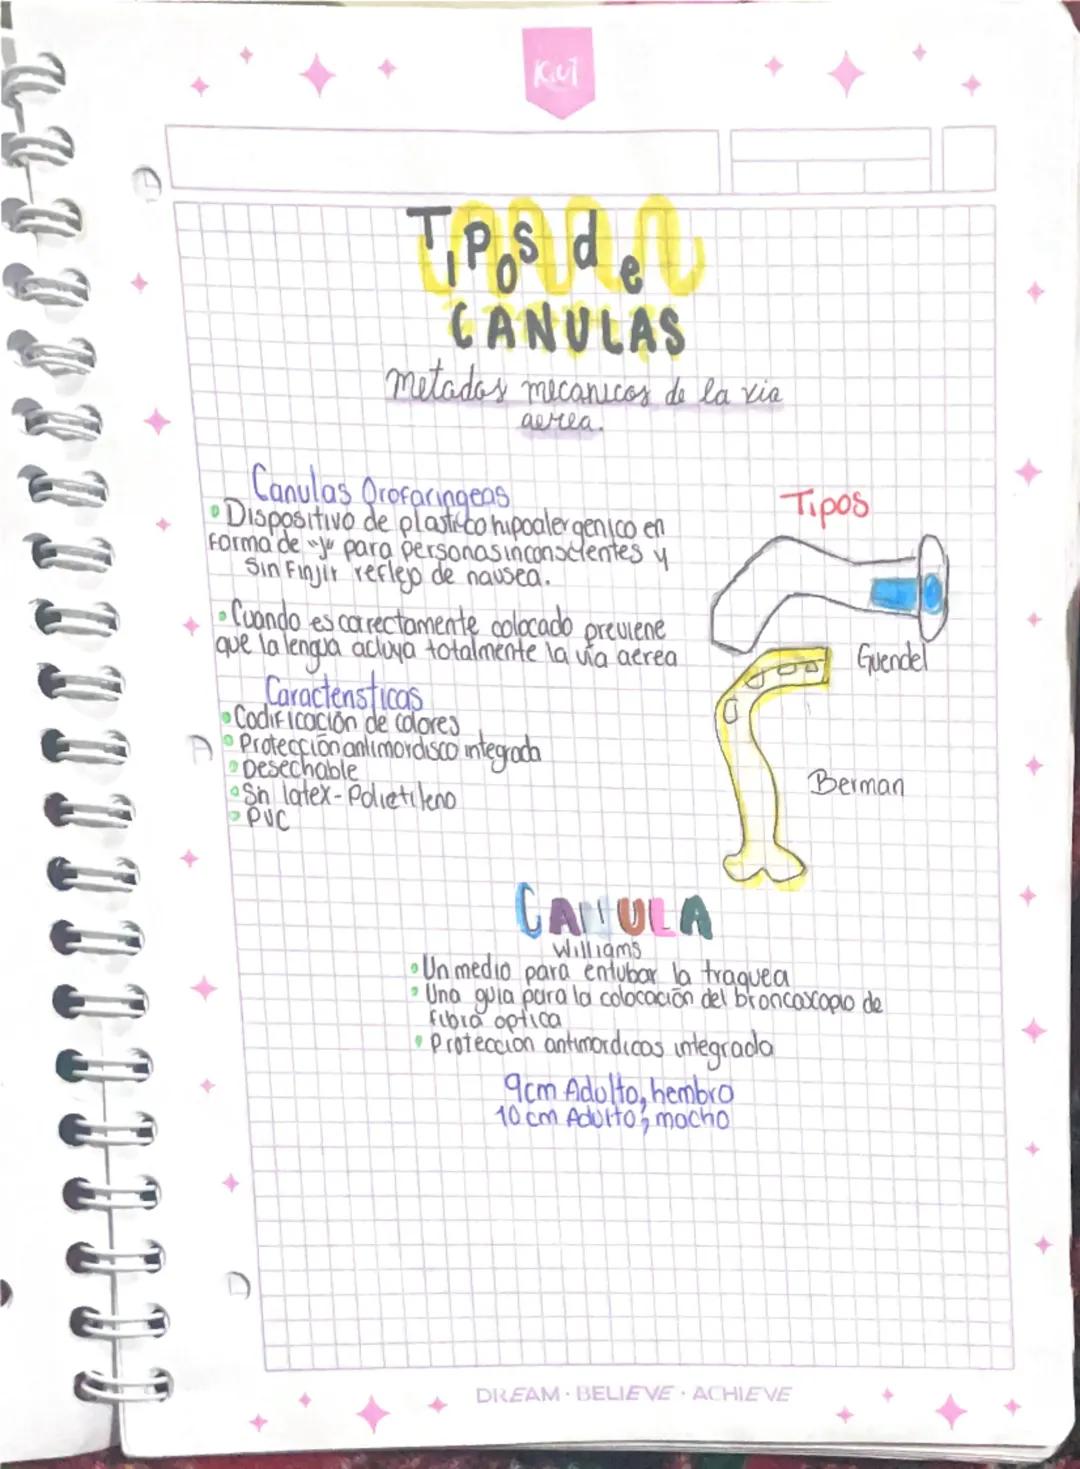 Kiut
Tipos de
CANULAS
metados mecanicos de la via
aerea.
Canulas Orofaringeas
Dispositivo de plastico hipoalergenico en
forma de "J" para personas inconscientes y
sin finjir reflejo de nausea.
Cuando es correctamente colocado previene
que la lengua acluya totalmente la vía aerea
Caracteristicas
Codificación de colores
Protección antimordisco integrada
Desechable
Sin latex - Polietileno
PVC
Tipos
Guendel
Berman
CANULA
Williams
Un medio para entubar la traquea
Una guia para la colocación del broncoscopio de
fibra optica
Protección antimordicos integrada
9cm Adulto, hembra
10 cm Adulto, macho
DREAM · BELIEVE · ACHIEVE